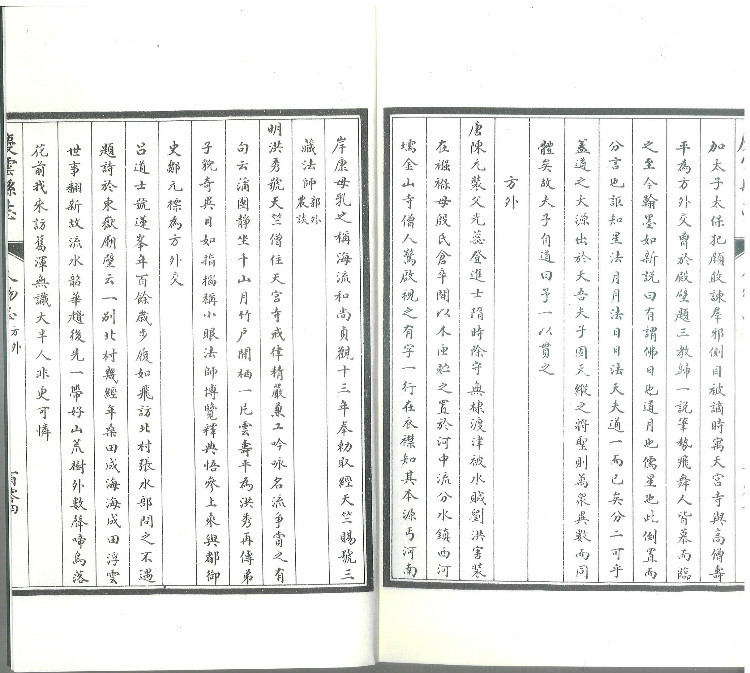 加太子太保犯顏敢諫群邪側目被謫時寓天宮寺與高僧壽
平為方外交曾於殿壁題三教歸一說筆勢飛舞人皆慕而臨
之至今翰墨如新說曰有謂佛日也道月也儒星也此倒置而
分言也詎知星法月月法日日法天夫道一而已矣分二可乎
蓋道之大源出於天吾夫子固天縱之將聖則萬眾異數而同
體矣故夫子自道曰予一以貫之
方外
唐陳元裝父光蕊登進士隋時除守無棣渡津被水賊劉洪害裝
在襁褓母殷氏倉卒間以木匣貯之置於河中流分水鎮西河
壖金山寺僧人驚啟視之有字一行在衣襟知其本源丐河南
岸康母乳之稱海流和尚貞觀十三年奉勅取經天竺賜號三
藏法師郡外農談
明洪秀號天竺僧住天宮寺戒律精嚴兼工吟咏名流爭賞之有
句云蒲團靜坐千山月竹戶閒栖一片雲壽平為洪秀再傳弟
子貌奇異目如指搐稱小眼法師博覽釋典悟參上乘與都御
史鄒元標為方外交
呂道士號蓮峯年百餘歲步履如飛訪北村張水部問之不遇
題詩於東嶽廟壁云一別北村幾經年桑田成海海成田浮雲
世事翻新故流水韶華趲後先一帶好山荒樹外數聲啼鳥落
花前我來訪舊渾無識大半人非更可憐
慶雲縣志
人物志 方外